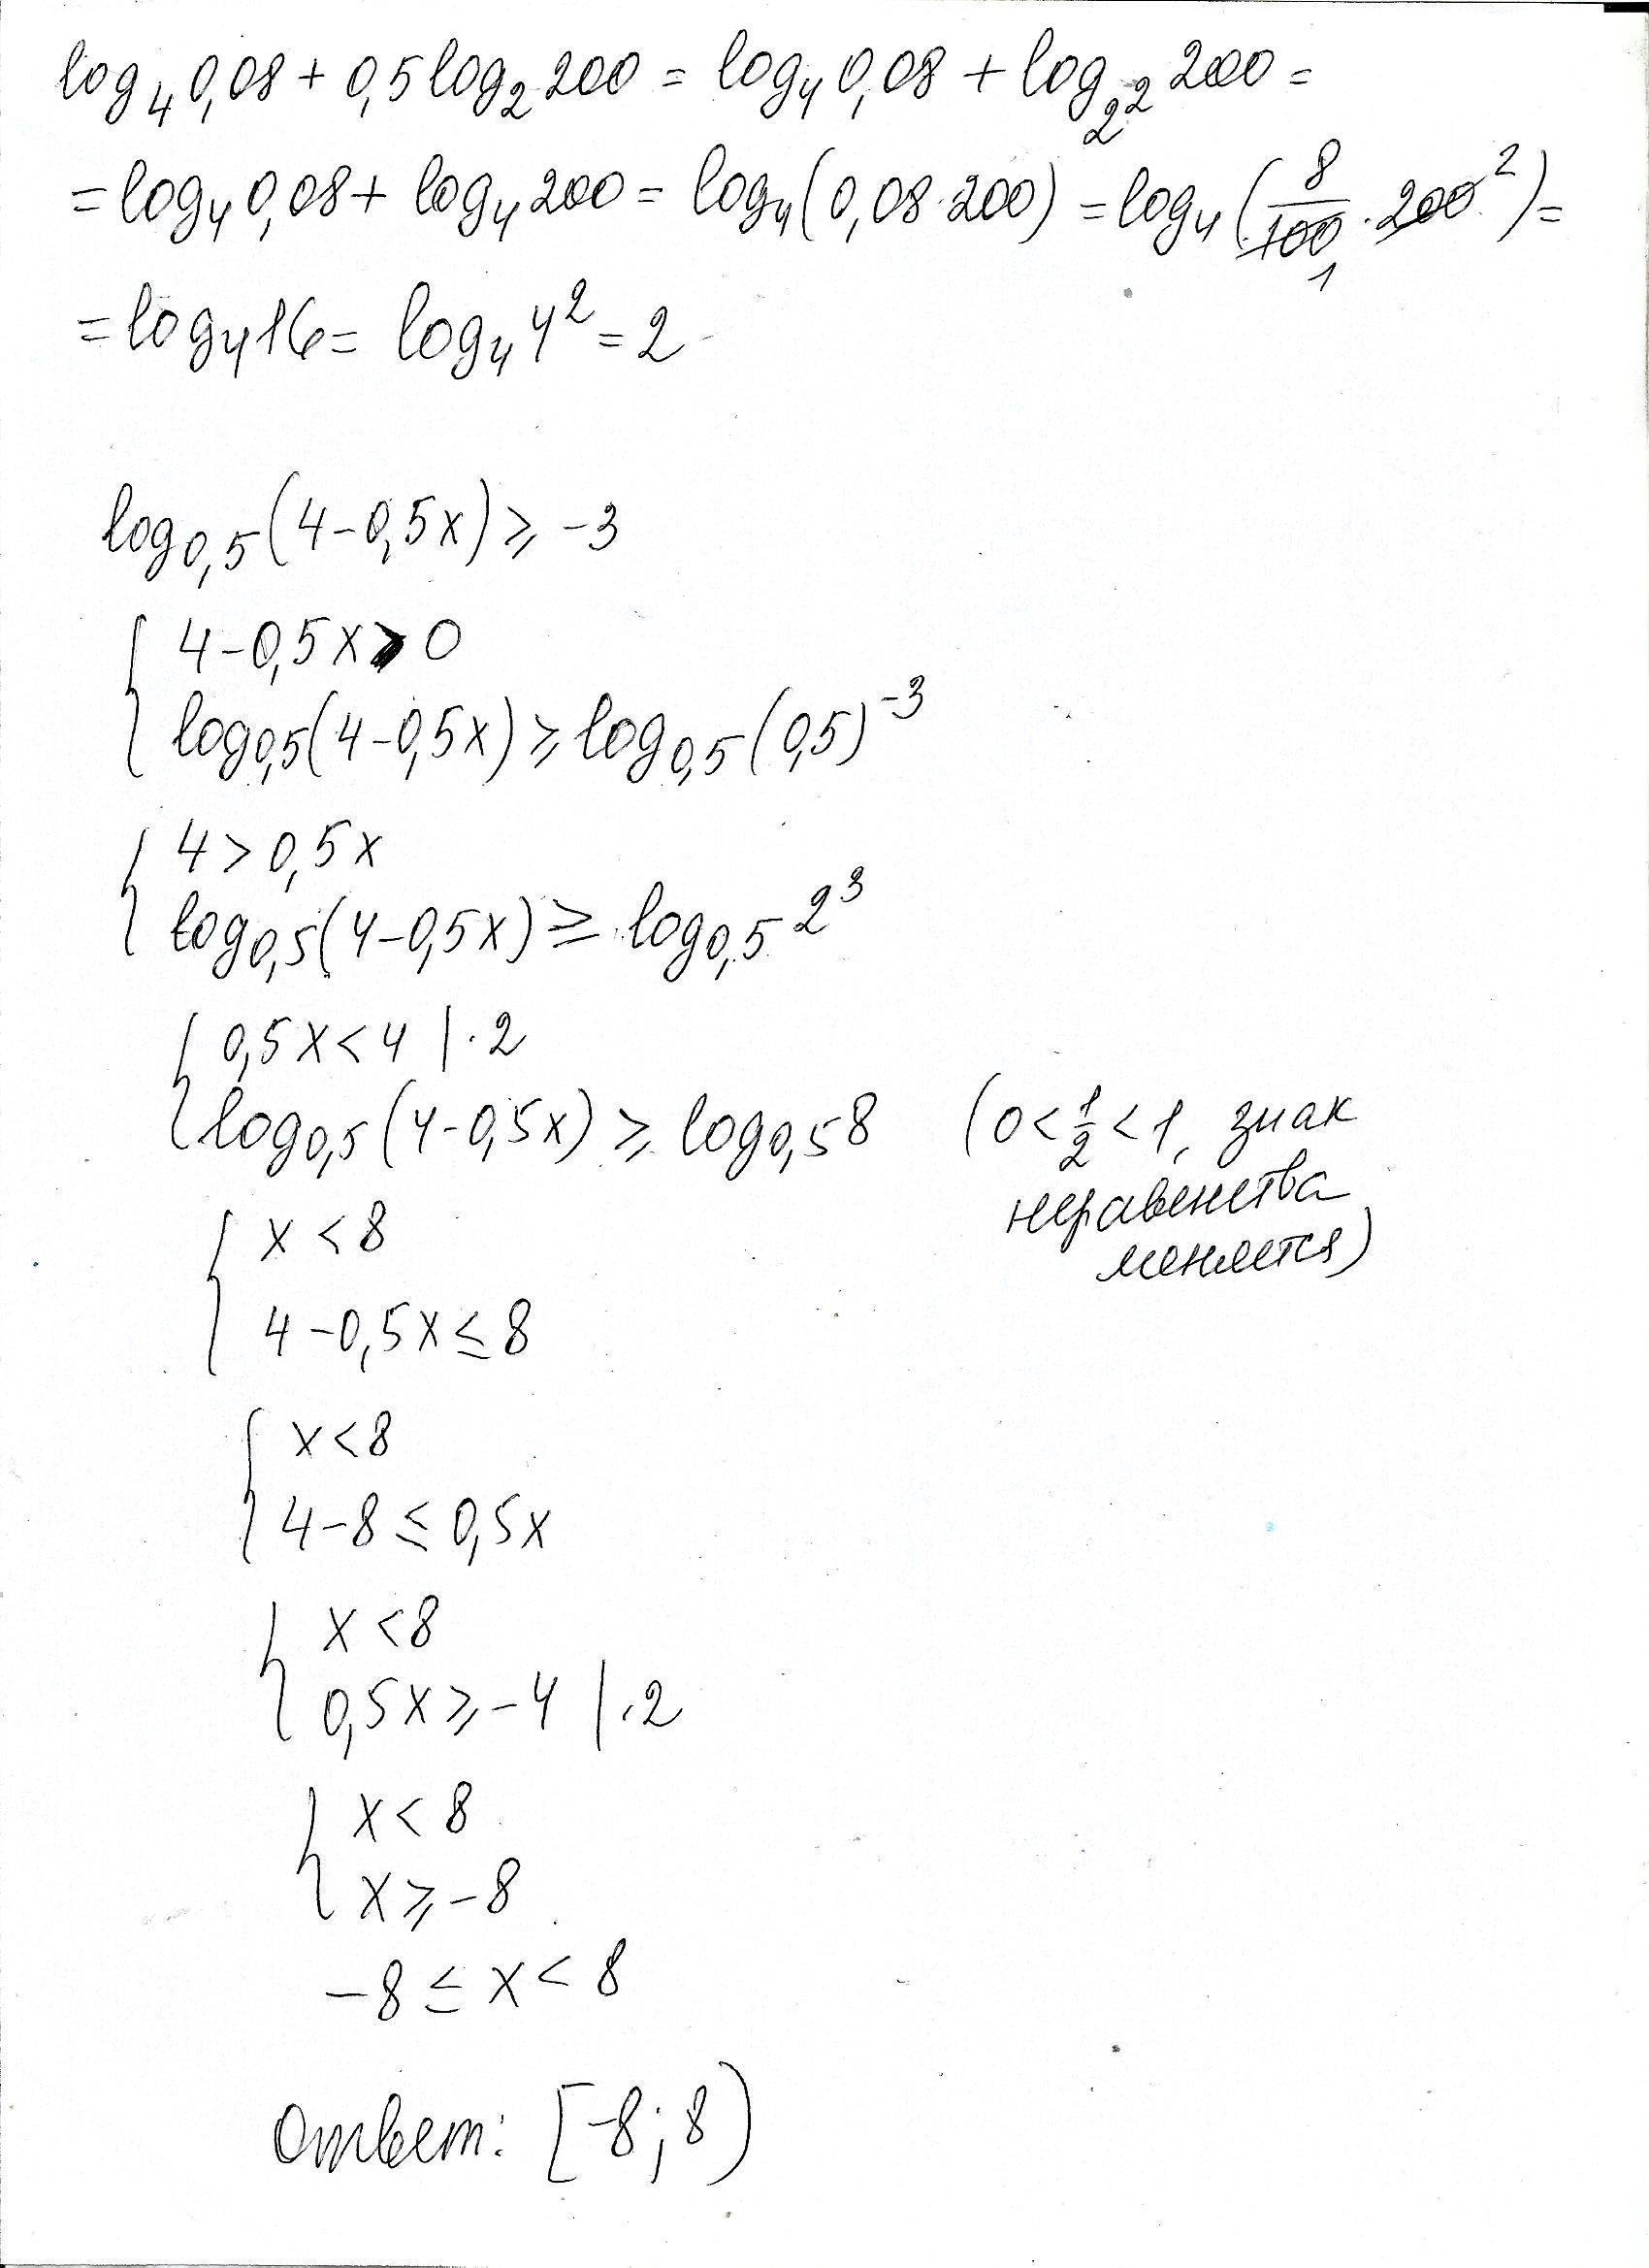 log₄0,08 + 0,5log₂200 = log₄0,08 + log_{2²}200 =
= log₄0,08 + log₄200 = log₄(0,08·200) = log₄(8/100₁ · 200²) =
= log₄16 = log₄4² = 2
log₀,₅(4-0,5x) ⩾ -3
{ 4-0,5x > 0
log₀,₅(4-0,5x) ⩾ log₀,₅(0,5)⁻³
{ 4 > 0,5x
log₀,₅(4-0,5x) ≥ log₀,₅2³
{ 0,5x < 4 | ·2
log₀,₅(4-0,5x) ⩾ log₀,₅8 (0 < 1/2 < 1, знак
неравенства
меняется)
{ x < 8
4-0,5x ≤ 8
{ x < 8
4-8 ≤ 0,5x
{ x < 8
0,5x ⩾ -4 | ·2
{ x < 8
x ⩾ -8
-8 ≤ x < 8
Ответ: [-8; 8)